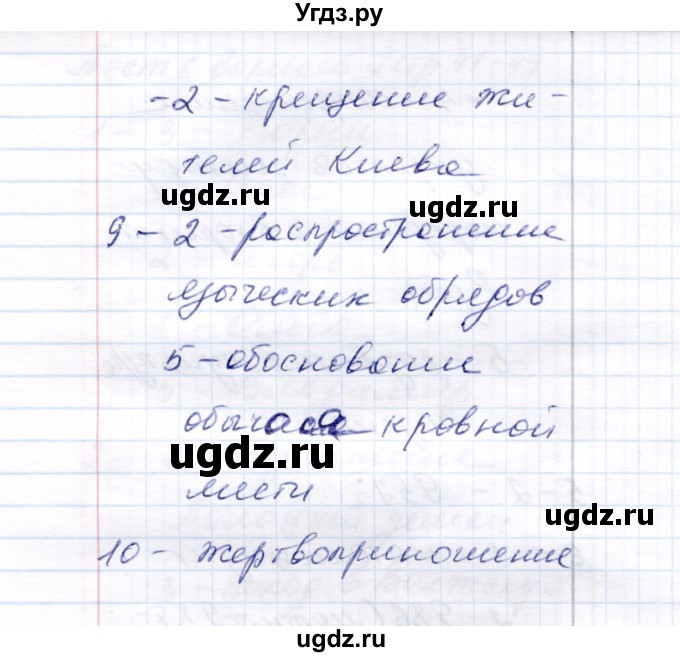 Угдз.ру
-2 - крещение жи-
телей Киева
ugdz.ru
ugdz.ru
9 - 2 - распространение
языческих обрядов
5 - обоснование
обычая кровной
ugdz.ru
мести
ugdz.ru
10 - жертвоприношение
ugdz.ru